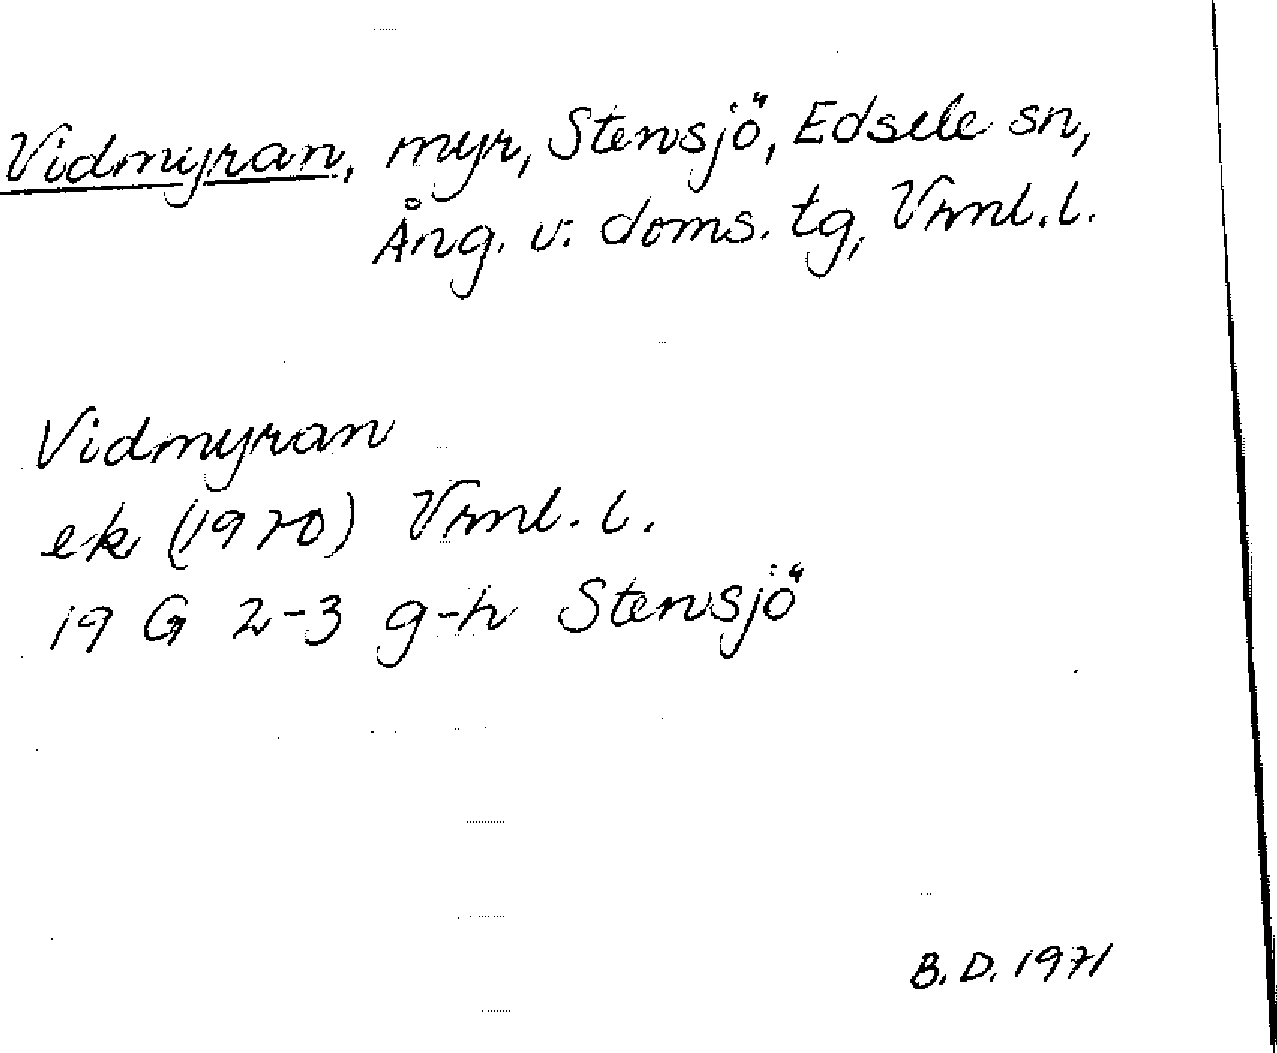 Vidmyran, myr, Stensjö, Edsele sn,
Ång. v. doms. tg, Vrml. l.
Vidmyran
ek (1970) Vrml. l.
19 G 2-3 g-h Stensjö
B. D. 1971